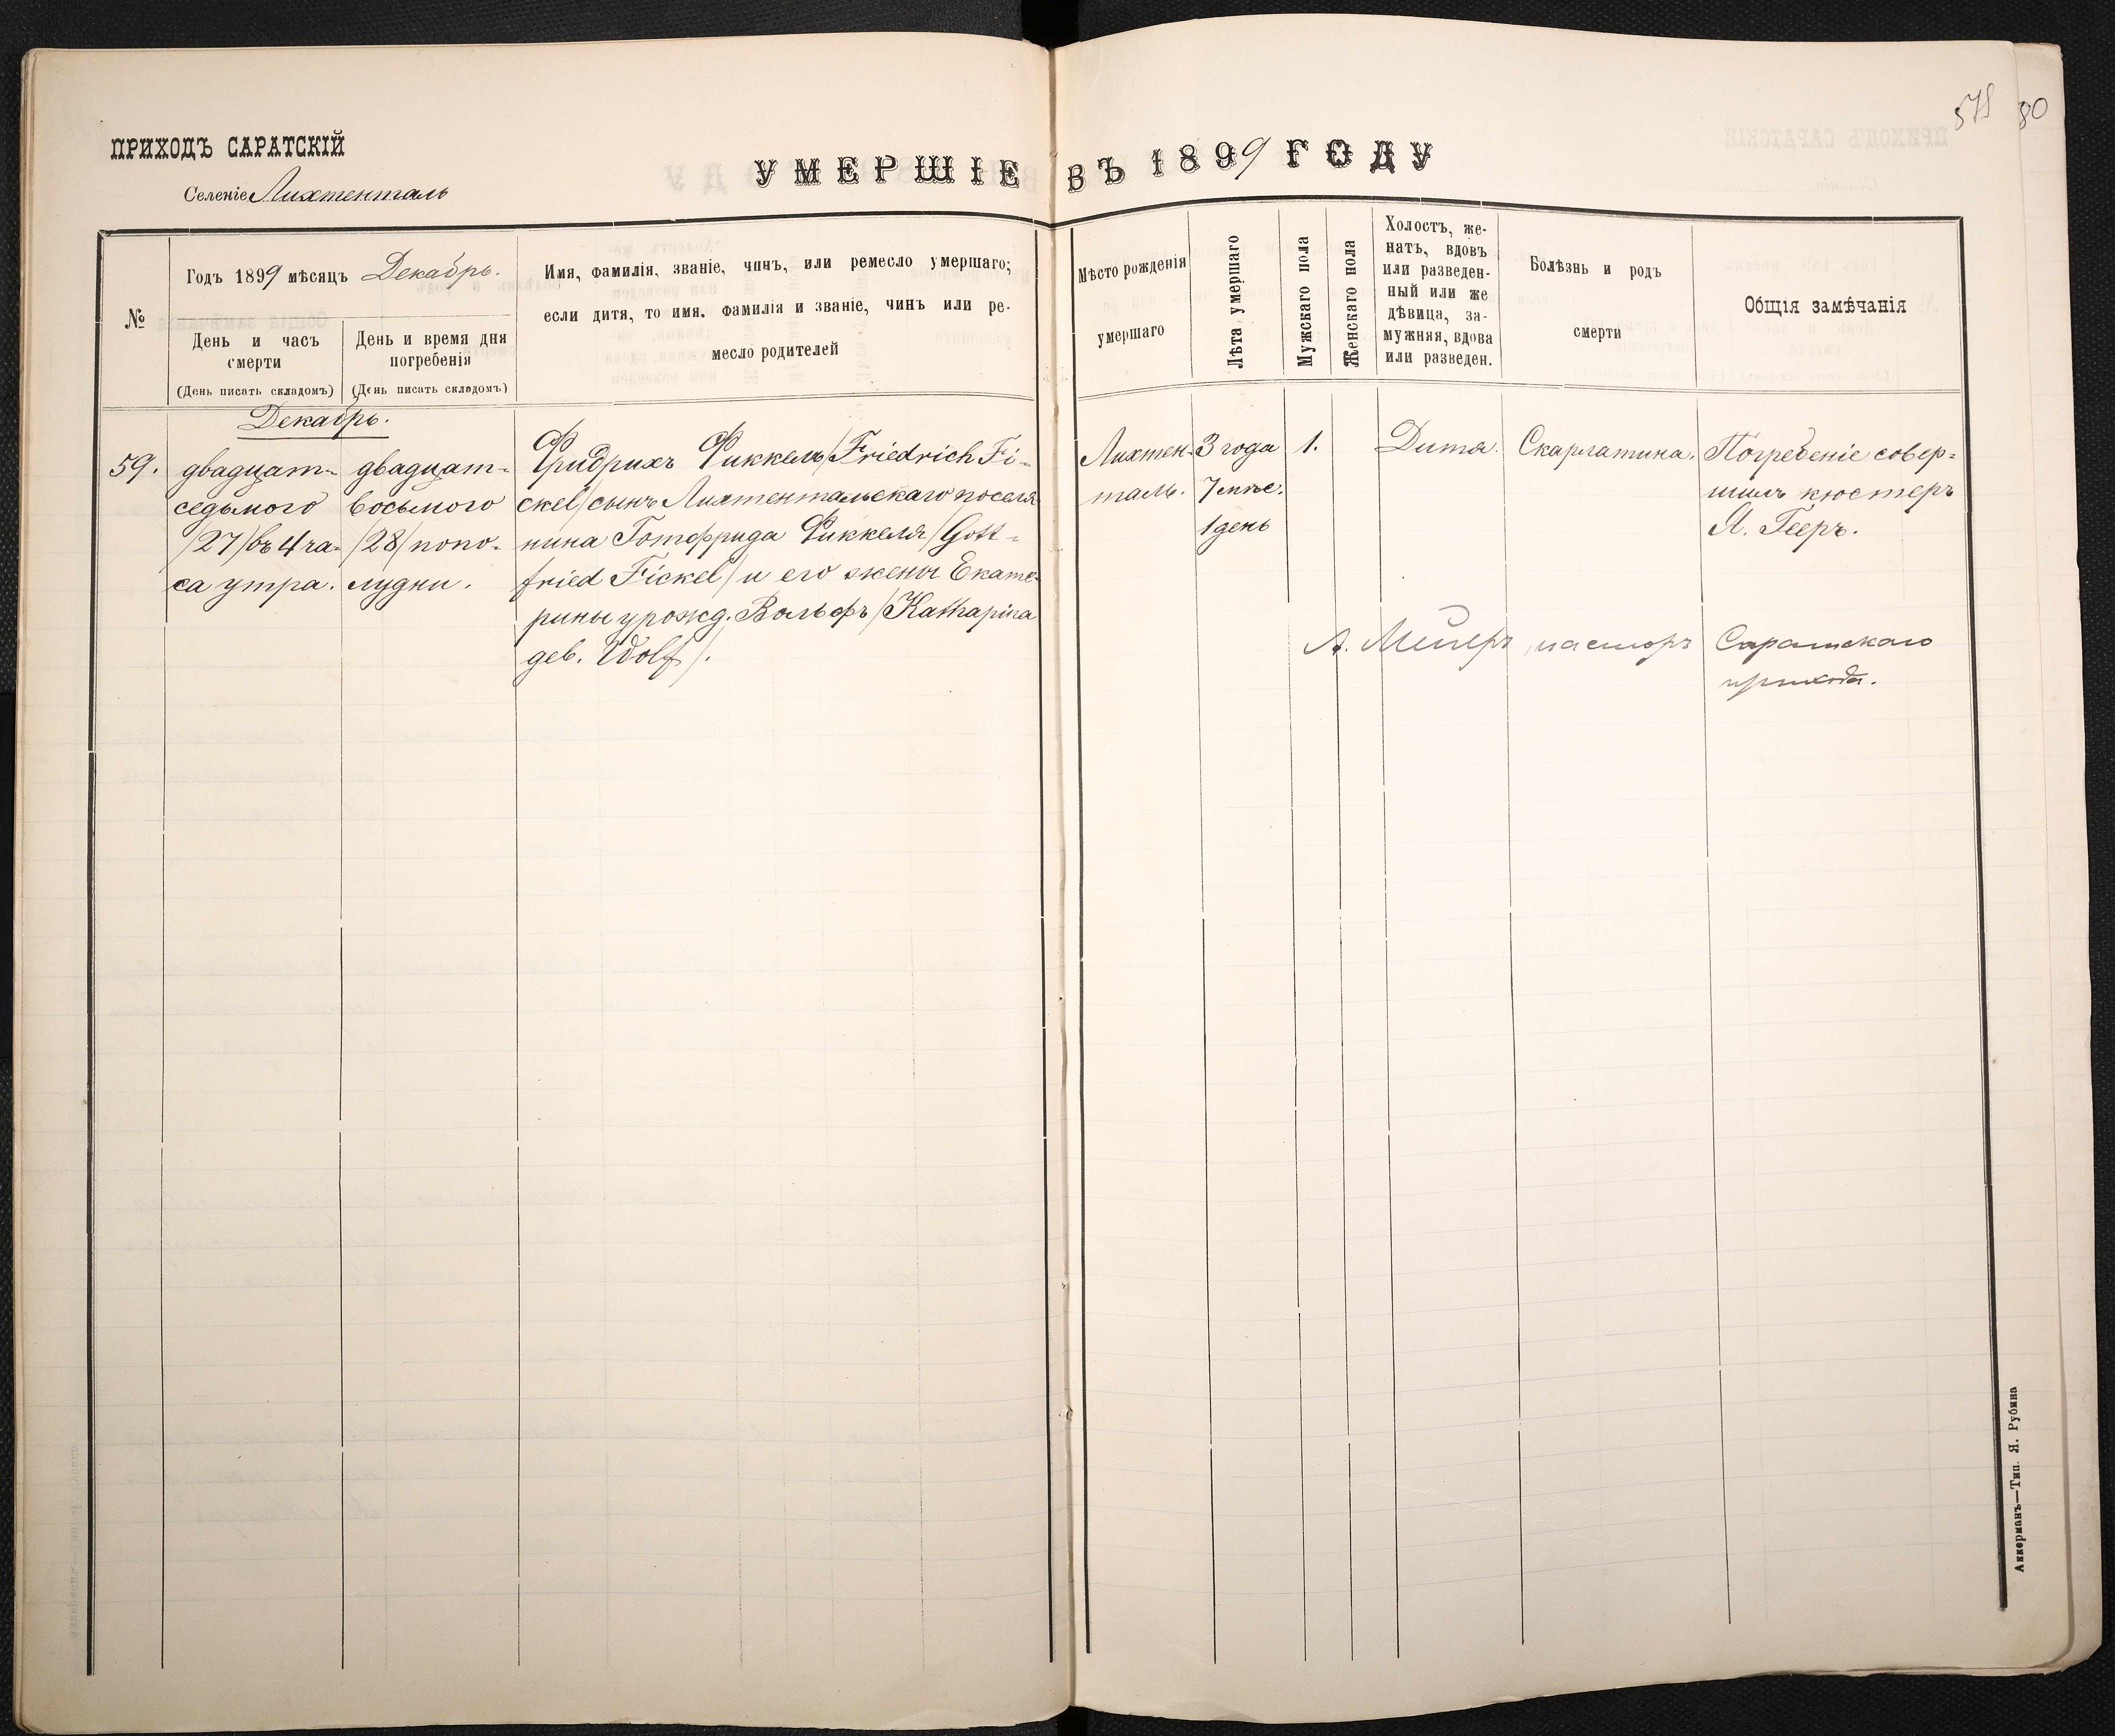 579 80
ПРИХОДЪ САРАТСКІЙ
Селеніе Лихтенталь
УМЕРШІЕ ВЪ 1899 ГОДУ
№
Годъ 1899 мѣсяцъ Декабрь.
День и часъ
смерти
(День писать складомъ)
День и время дня
погребенія
(День писать складомъ)
Имя, фамилія, званіе, чинъ, или ремесло умершаго;
если дитя, то имя. фамилія и званіе, чинъ или ре-
месло родителей
Мѣсто рожденія
умершаго
Лѣта умершаго
Мужскаго пола
Женскаго пола
Холостъ, же-
натъ, вдовъ
или разведен-
ный или же
дѣвица, за-
мужняя, вдова
или разведен.
Болѣзнь и родъ
смерти
Общія замѣчанія
Декабрь.
59.
двадцать-
седьмого
/27/ въ 4 ча-
са утра.
двадцать-
восьмого
/28/ попо-
лудни.
Фридрихъ Фиккель /Friedrich Fi-
ckel/ сынъ Лихтентальскаго поселя
нина Готфрида Фиккеля /Gott-
fried Fickel/ и его жены Екате-
рины урожд. Вольфъ /Katharina
geb. Wolf/.
Лихтен-
таль.
3 года
7 мѣс.
1 день
1.
Дитя.
Скарлатина.
Погребеніе совер-
шилъ кюстеръ
Я. Гееръ.
А. Мейеръ, пасторъ Саратскаго
прихода.
Аккерманъ—Тип. Я. Рубина